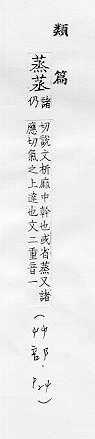 類篇
蒸蒸諸仍
切說文析麻中幹也或省蒸又諸
應切氣之上達也文二重音一
(艸部·P24)